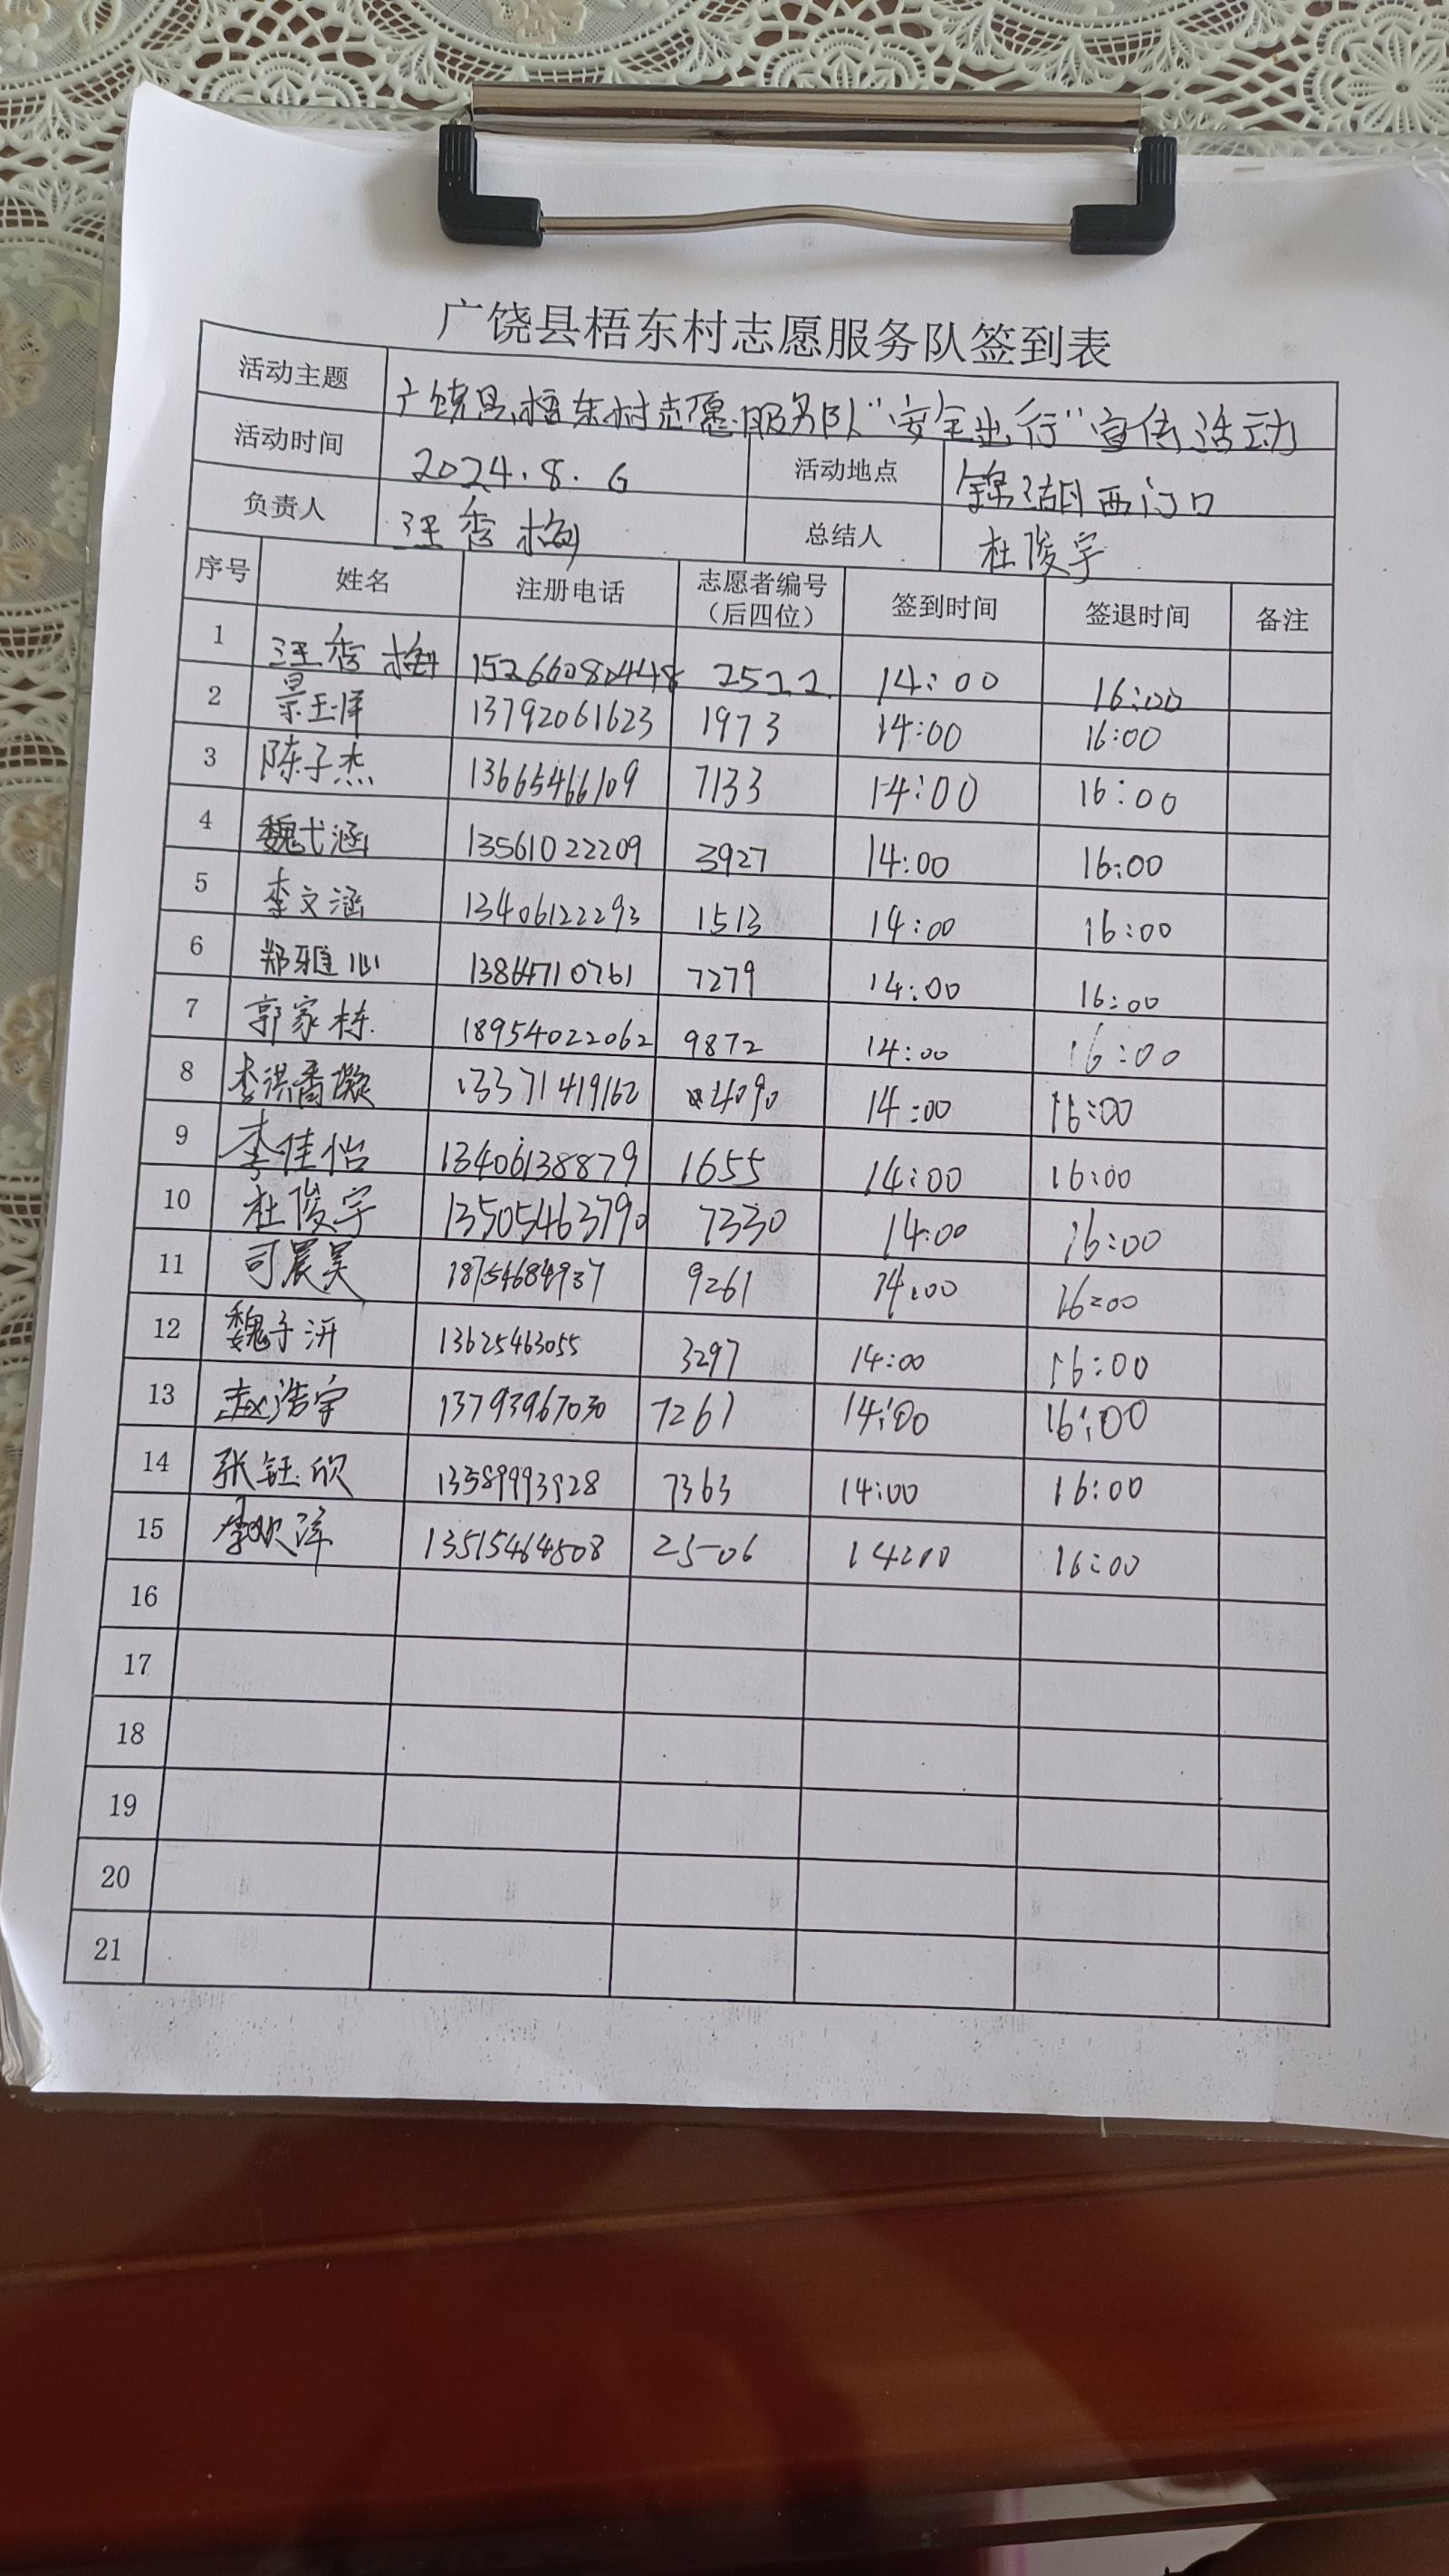 广饶县梧东村志愿服务队签到表
活动主题 广饶县梧东村志愿服务队"安全出行"宣传活动
活动时间 2024.8.6 活动地点 锦湖西门口
负责人 汪秀梅 总结人 杜俊宇
序号 姓名 注册电话 志愿者编号（后四位） 签到时间 签退时间 备注
1 汪秀梅 15266080448 2522 14:00 16:00
2 景玉泽 13792061623 1973 14:00 16:00
3 陈子杰 13665466109 7133 14:00 16:00
4 魏弋涵 13561022209 3927 14:00 16:00
5 李文涵 13406122293 1513 14:00 16:00
6 郑雅心 13864710761 7279 14:00 16:00
7 郭家栋 18954022062 9872 14:00 16:00
8 李洪 13371419162 4090 14:00 16:00
9 李佳怡 13406138879 1655 14:00 16:00
10 杜俊宇 13505463790 7330 14:00 16:00
11 司晨昊 18754684937 9261 14:00 16:00
12 魏子汧 13625463055 3297 14:00 16:00
13 赵浩宇 13793967030 7261 14:00 16:00
14 张钰欣 13589993928 7363 14:00 16:00
15 李欣泽 13515464508 2506 14:00 16:00
16
17
18
19
20
21